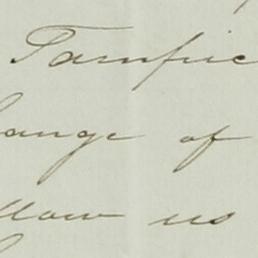 Tampic
ange of
llow us